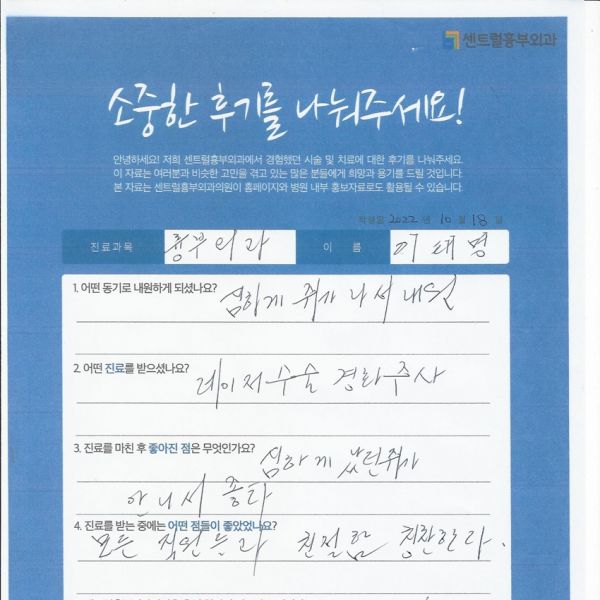 센트럴흉부외과
소중한 후기를 나눠주세요!
안녕하세요! 저희 센트럴흉부외과에서 경험했던 시술 및 치료에 대한 후기를 나눠주세요.
이 자료는 여러분과 비슷한 고민을 겪고 있는 많은 분들에게 희망과 용기를 드릴 것입니다.
본 자료는 센트럴흉부외과의원이 홈페이지와 병원 내부 홍보자료로도 활용될 수 있습니다.
작성일 2022 년 10 월 18 일
진료과목 흉부외과 이 름 이태명
1. 어떤 동기로 내원하게 되셨나요? 심하게 쥐가 나서 내원
2. 어떤 진료를 받으셨나요?
레이저수술 경화주사
3. 진료를 마친 후 좋아진 점은 무엇인가요? 심하게 났던쥐가
안나서 좋다
4. 진료를 받는 중에는 어떤 점들이 좋았었나요?
모든 직원들과 친절함 칭찬한다.